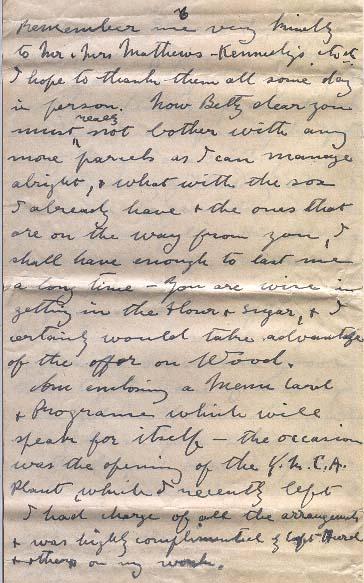 6
Remember me very kindly
to Mr & Mrs Mathews - Kennedy's &
I hope to thank them all some day
in person. Now Betty dear you
really
must not bother with any
more parcels as I can manage
alright, & what with the sox
I already have & the ones that
are on the way from you, I
shall have enough to last me
a long time - You are wise in
getting in the flour & sugar, & I
certainly would take advantage
of the offer on Wood.
Am enclosing a Menu Card
& Programe which will
speak for itself - the occasion
was the opening of the Y.M.C.A.
Plant which I recently left
I had charge of all the arrangements
& was highly complimented by Capt
& others on my work.